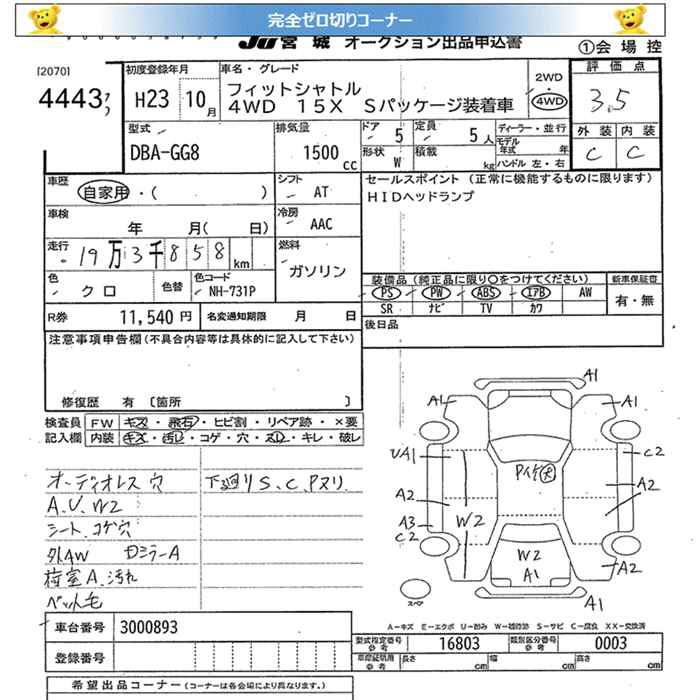 完全ゼロ切りコーナー
JU宮城 オークション出品申込書
①会場控
[2070]
4443
初度登録年月
H23 10月
車名・グレード
フィットシャトル
4WD 15X Sパッケージ装着車
2WD
4WD
評価点
3.5
外装 内装
C C
型式
DBA-GG8
排気量
1500 cc
ドア 5
定員 5人
形状 W
積載 kg
ディーラー・並行
モデル年式 年
ハンドル 左・右
車歴
自家用・( )
シフト
AT
車検
年 月( 日)
冷房
AAC
走行
19万3千858km
燃料
ガソリン
色
クロ
色替
色コード
NH-731P
R券 11,540円
名変通知期限 月 日
セールスポイント (正常に機能するものに限ります)
HIDヘッドランプ
装備品 (純正品に限り○をつけてください)
PS PW ABS エアB AW
SR ナビ TV カワ
新車保証書
有・無
後日品
注意事項申告欄(不具合内容等は具体的に記入して下さい)
修復歴 有 〔箇所 〕
検査員記入欄
FW キズ・飛石・ヒビ割・リペア跡・×要
内装 キズ・汚レ・コゲ・穴・スレ・キレ・破レ
オーディオレス穴
A.U.W2
シート、コゲ穴
外AW ロミラーA
荷室A.汚れ
ペット毛
下廻りS、C、Pヌリ
A1
A1
A1
UA1
C2
A2
A2
A3
C2
W2
W2
A1
A2
A1
スペア
A-キズ E-エクボ U-凹み W-補修跡 S-サビ C-腐食 XX-交換済
車台番号 3000893
登録番号
型式指定番号 参考 16803
類別区分番号 参考 0003
車庫証明用 参考 長さ cm 幅 cm 高さ cm
希望出品コーナー (コーナーは各会場により異なります。)